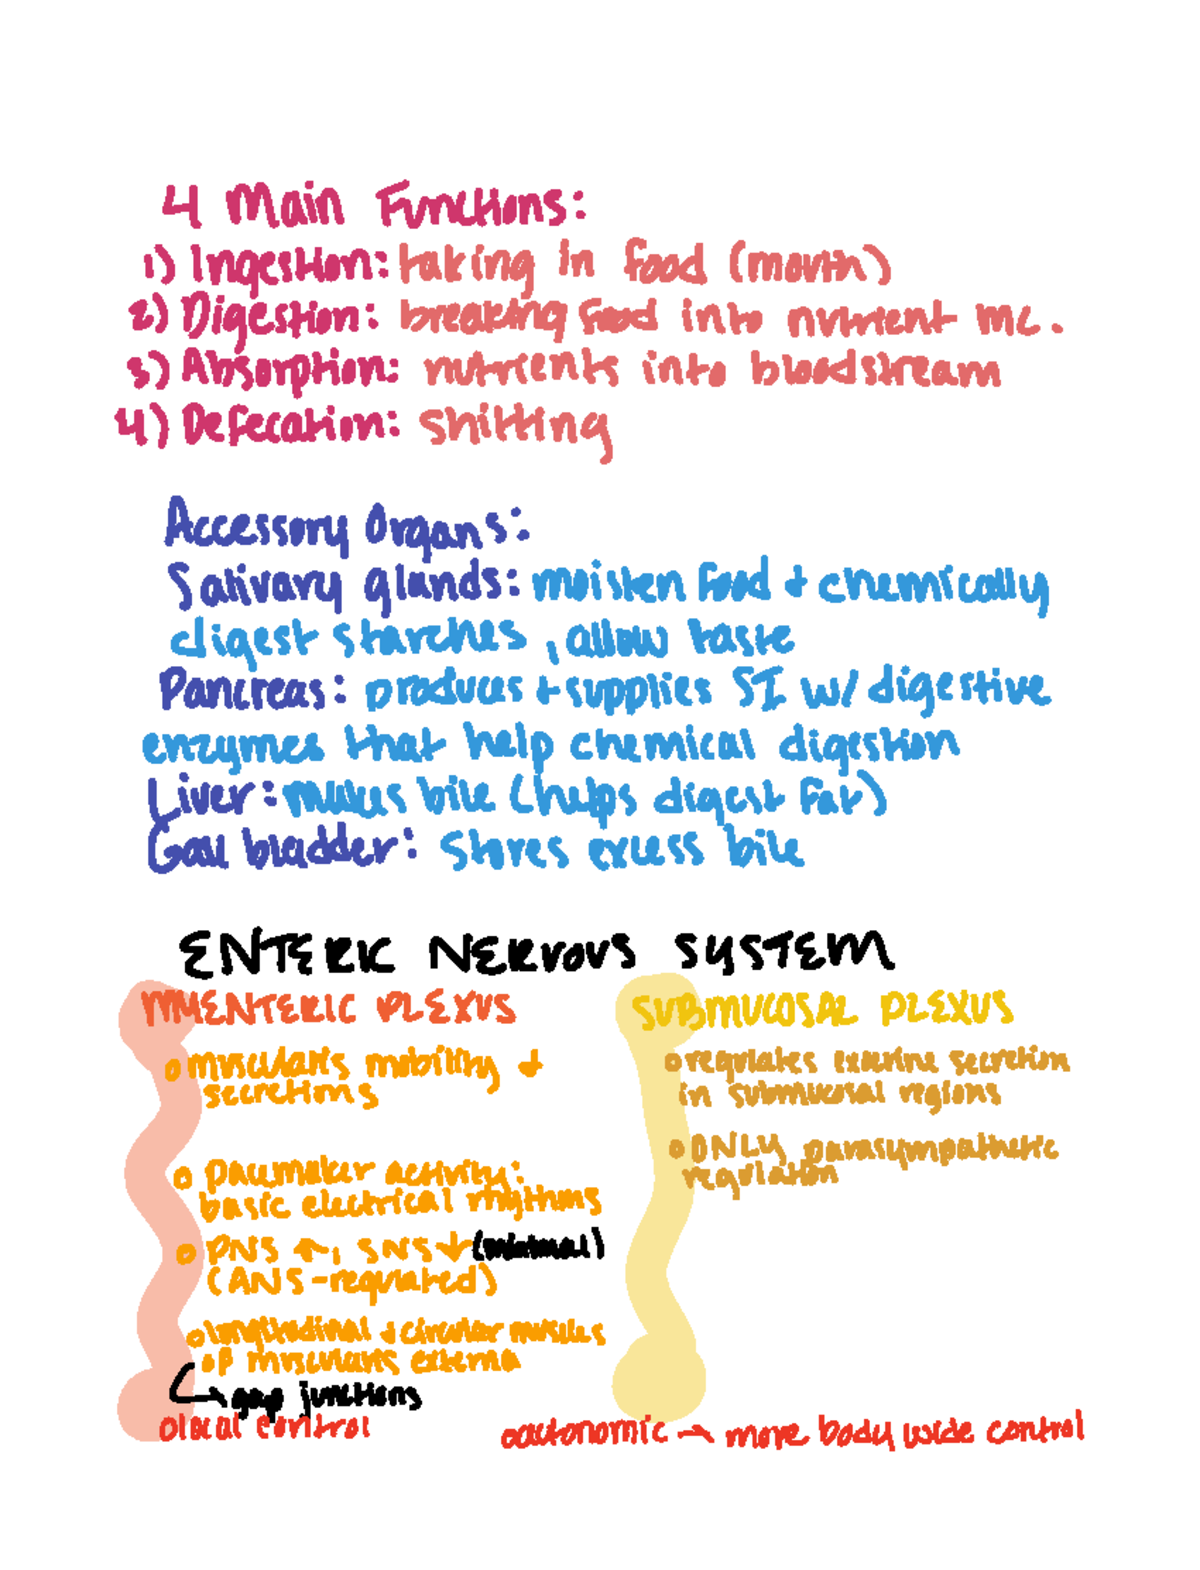 4 Main Functions:
1) Ingestion: taking in food (mouth)
2) Digestion: breaking food into nutrient mc.
3) Absorption: nutrients into bloodstream
4) Defecation: shitting
Accessory Organs:
Salivary glands: moisten food + chemically
digest starches, allow taste
Pancreas: produces + supplies SI w/ digestive
enzymes that help chemical digestion
Liver: makes bile (helps digest fat)
Gall bladder: stores excess bile
ENTERIC NERVOUS SYSTEM
MYENTERIC PLEXUS
o muscularis mobility +
secretions
o pacemaker activity:
basic electrical rhythms
o PNS ↑, SNS ↓ (minimal)
(ANS-regulated)
o longitudinal + circular muscles
of muscularis externa
↳ gap junctions
o local control
SUBMUCOSAL PLEXUS
o regulates exocrine secretion
in submucosal regions
o ONLY parasympathetic
regulation
o autonomic → more body wide control